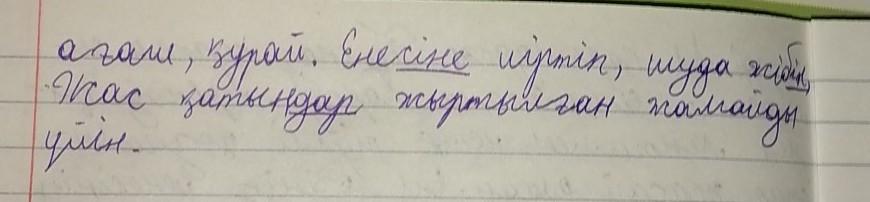 ағаш, қурай. Енесіне иіртіп, шуда жібін,
Жас қатындар жыртылған жамайды
үйін.